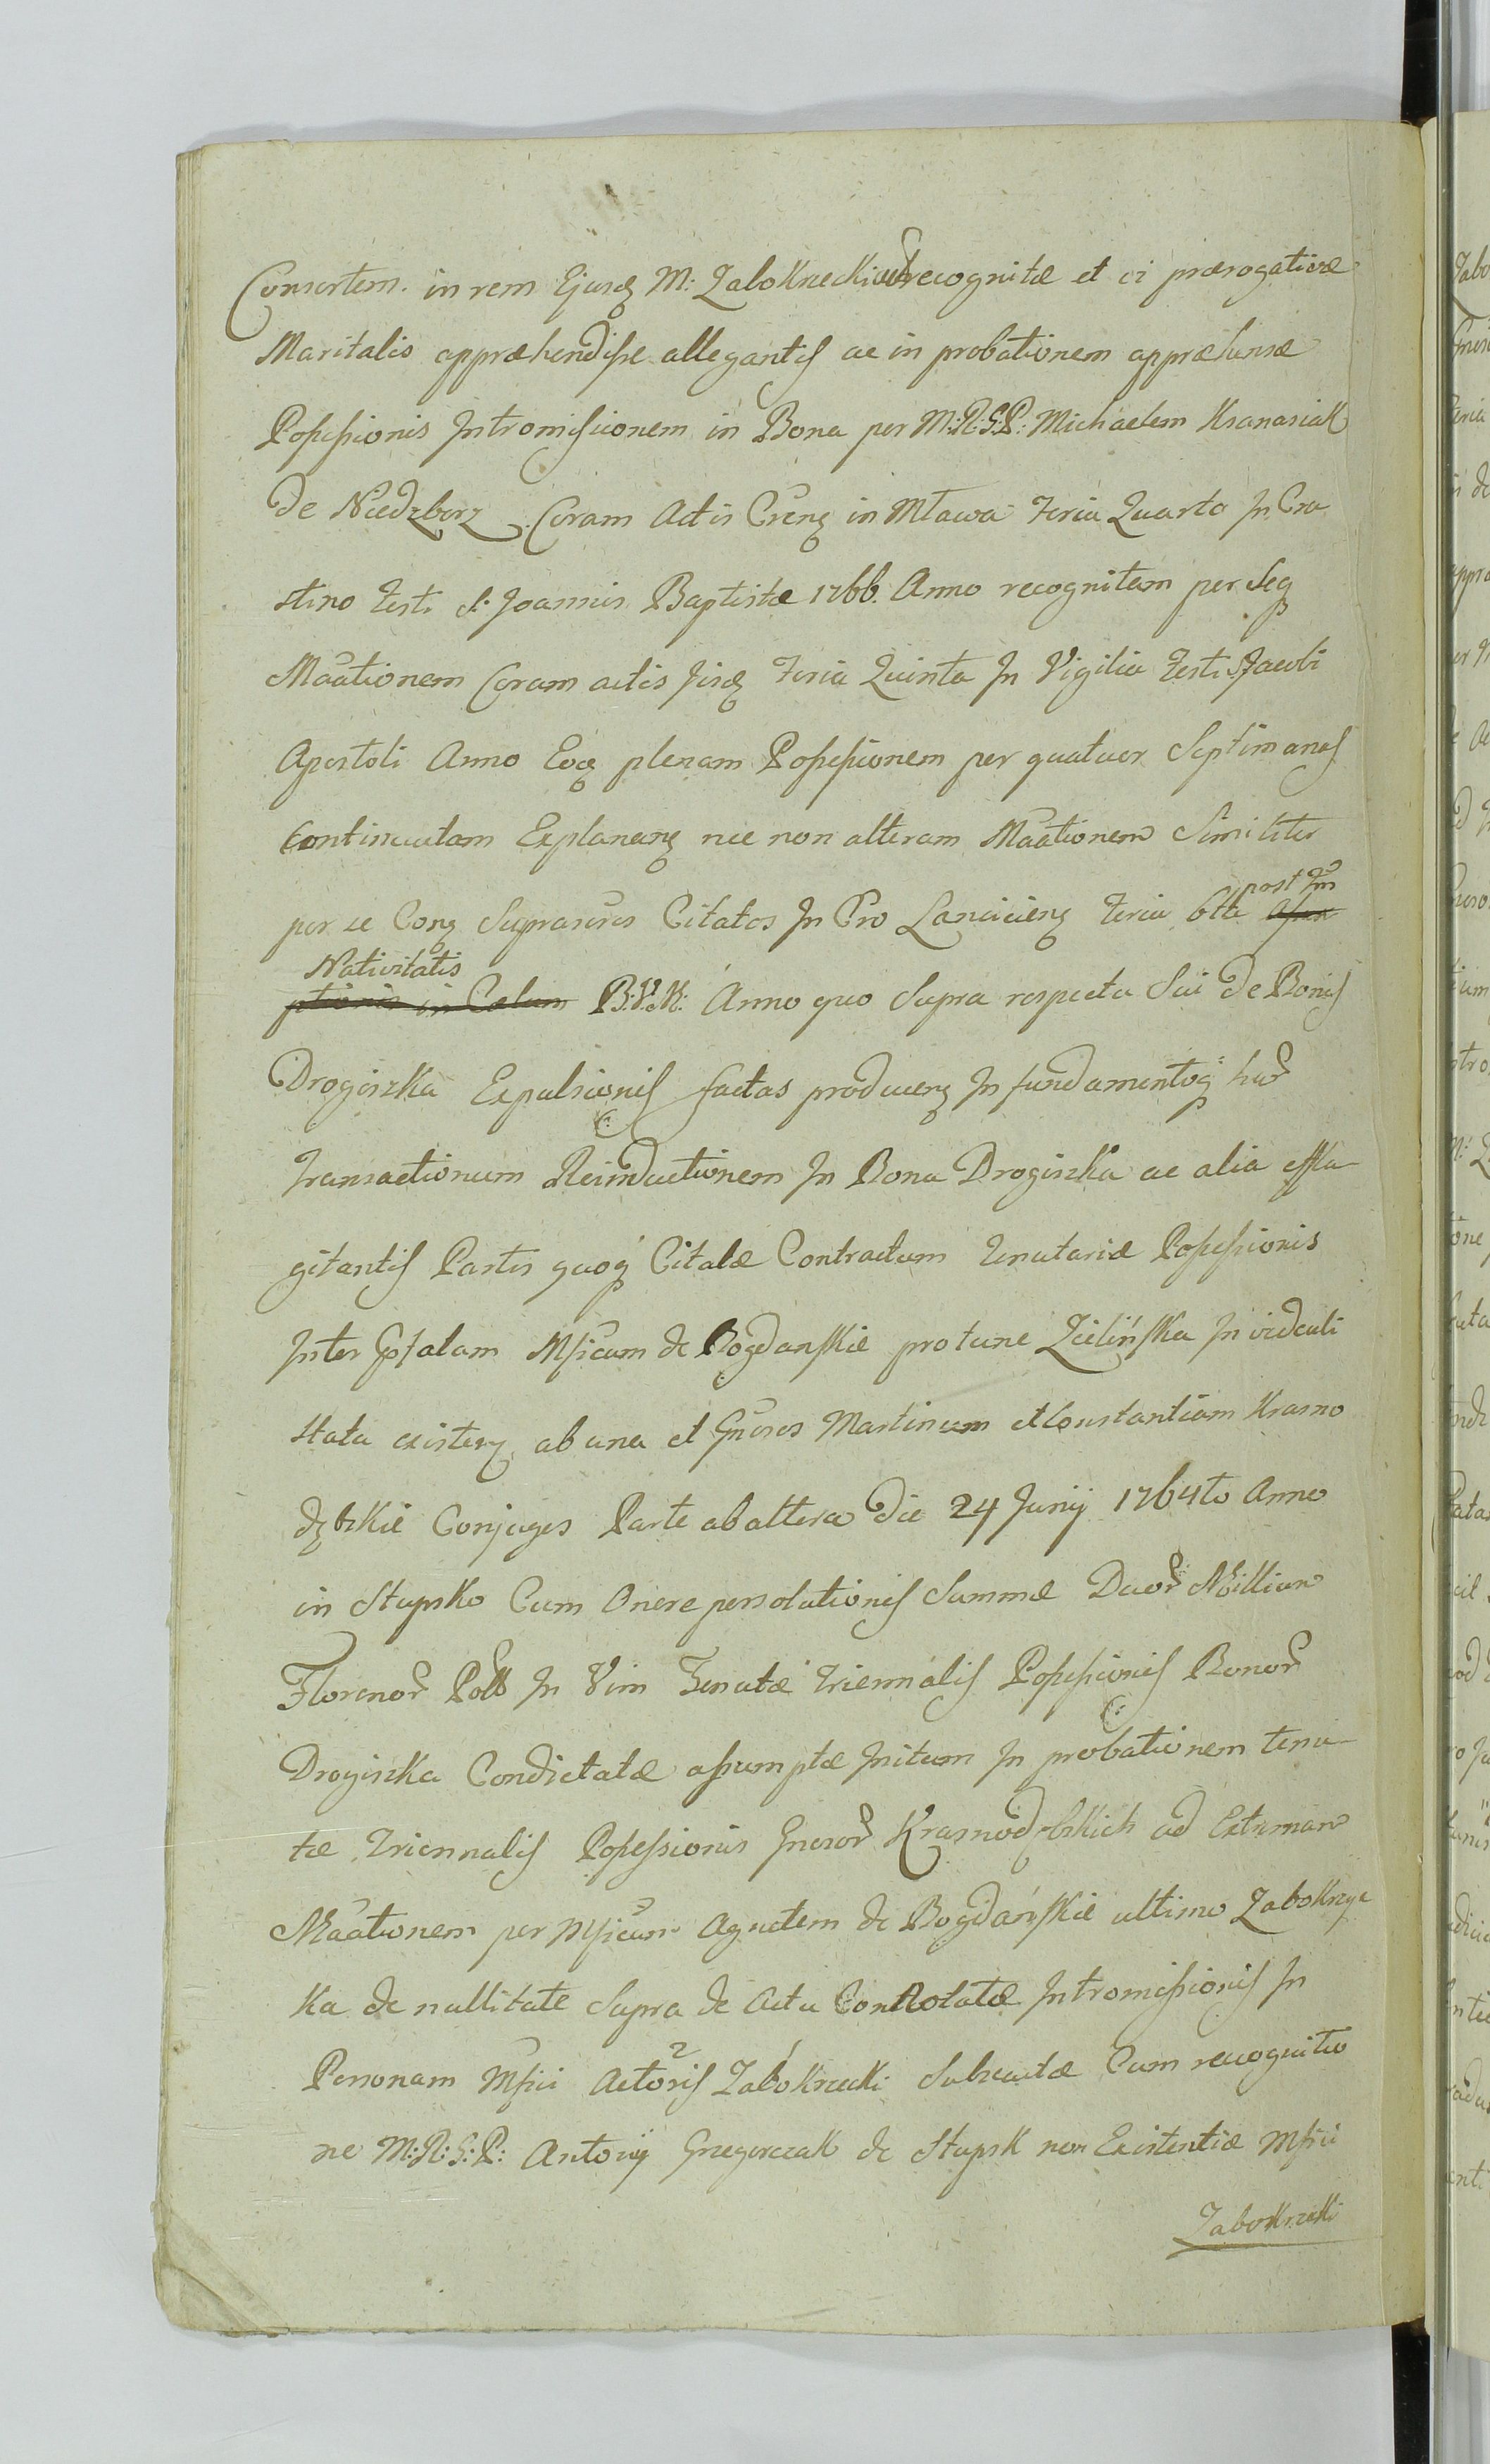 Consortem. in rem Ejusq M: Zabokrzecki recognitæ et ei prærogativæ
Maritalis appræhendisse allegantis ac in probationem appræhensæ
Possessionis Intromissionem in Bona per M:R:G:P: Michaelem Kranasiak
de Niedzborz Coram Actis Crenz in Mława Feria Quarta In Cra
stino Festi S: Joannis Baptistæ 1766. Anno recognitam per Seq
Maationem Coram actis Jisq Feria Quinta In Vigilia Festi S Jacobi
Apostoli Anno Eoq plenam Possessionem per quatuor Septimanas
Continuatam Explanenz nec non alteram Maationem Similiter
per se Conq Suprascres Citatos In Cro Lanciciens Feria 6tta post Fm
Nativitatis
ptionis in Celum B:V:M: Anno quo Supra respectu Sui de Bonis
Drogiszka Expulsionis factas producenz In fundamentoq har
Transactionum Reinductionem In Bona Drogiszka ac alia effla-
gitantis Partis quoq Citatæ Contractum Tenutariæ Possessionis
Inter Mficam de Bogdanskie protunc Zielińska In viduali
statu existenz ab una et Gneros Martinum et Constantiam Krasno
dębskie Conjuges Parte ab altera die 24 Junij 1764to Anno
in Stupsko Cum Onere persolutionis Summæ Duor Millium
Florenor Poll In Vim Tenutæ Triennalis Possessionis Bonor
Drogiszka Condictatæ assumptæ Initum In probationem tenu-
tæ Triennalis Possessionis Gnesor Krasnodębskich ad Extremam
Maationem per Mficam Agnetem de Bogdańskie ultimo Zabokrzyc
ka de nullitate Supra de Actu Connotatæ Intromissionis In
Personam Mfici Actoris Zabokrzecki Subsecutæ Cum recognitio
ne M:R:G:P: Antonij Grzegorczak de Stupsk non Existentiæ Mfici
Zabokrzecki